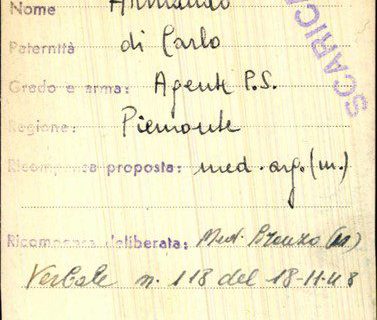 Nome Armando
Paternità di Carlo
Grado e arma: Agente P.S.
Regione: Piemonte
Ricompensa proposta: med. arg. (m.)
Ricompensa deliberata: Med. Bronzo (m)
Verbale n. 118 del 18-11-48
SCARICA